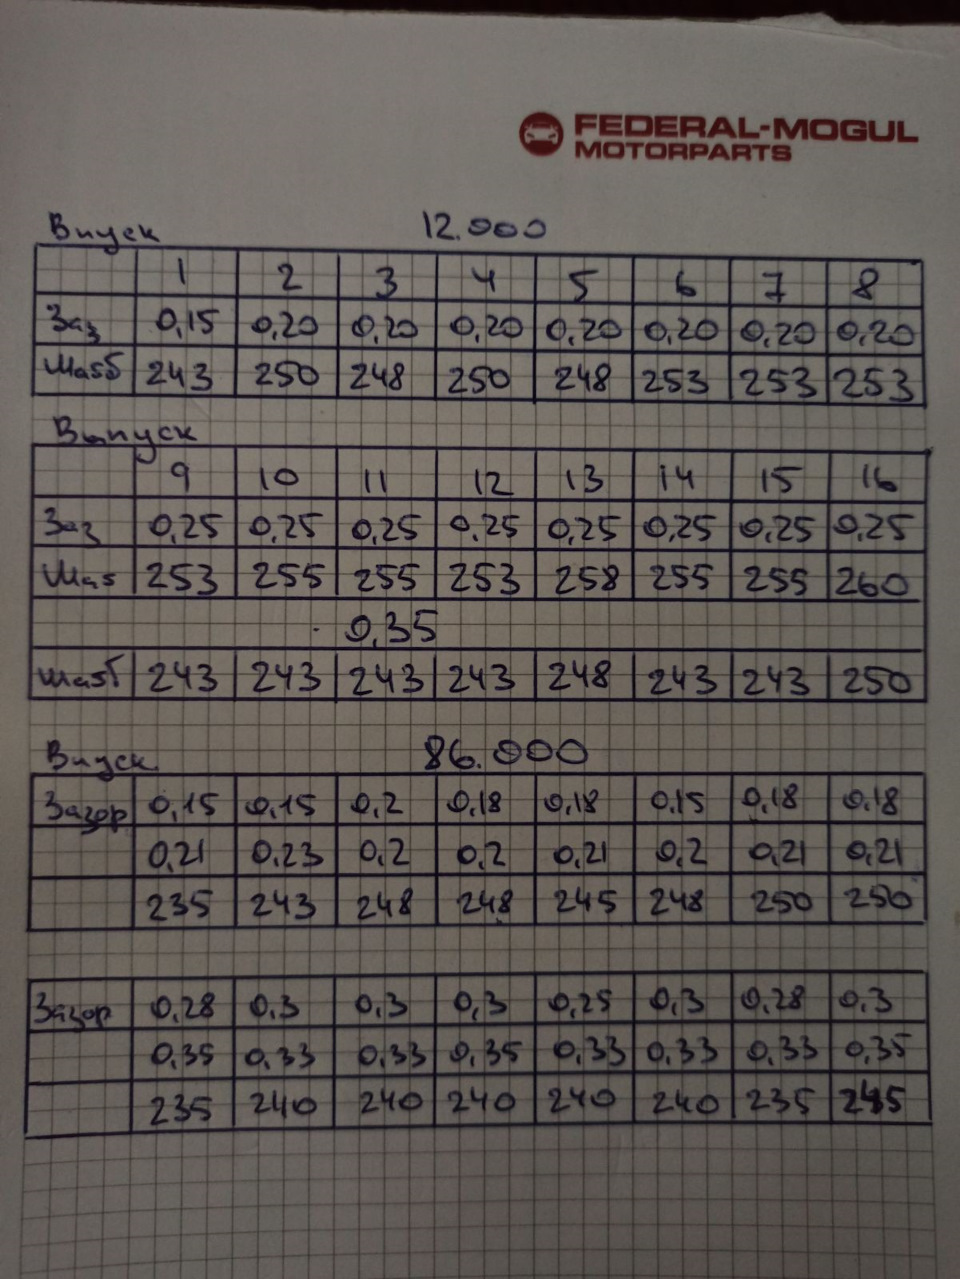 FEDERAL-MOGUL
MOTORPARTS
Впуск 12.000
1 2 3 4 5 6 7 8
Заз 0,15 0,20 0,20 0,20 0,20 0,20 0,20 0,20
Шайб 243 250 248 250 248 253 253 253
Выпуск
9 10 11 12 13 14 15 16
Заз 0,25 0,25 0,25 0,25 0,25 0,25 0,25 0,25
Шай 253 255 255 253 258 255 255 260
0,35
Шайб 243 243 243 243 248 243 243 250
Впуск 86.000
Зазор 0,15 0,15 0,2 0,18 0,18 0,15 0,18 0,18
0,21 0,23 0,2 0,2 0,21 0,2 0,21 0,21
235 243 248 248 245 248 250 250
Зазор 0,28 0,3 0,3 0,3 0,25 0,3 0,28 0,3
0,35 0,33 0,33 0,35 0,33 0,33 0,33 0,35
235 240 240 240 240 240 235 245